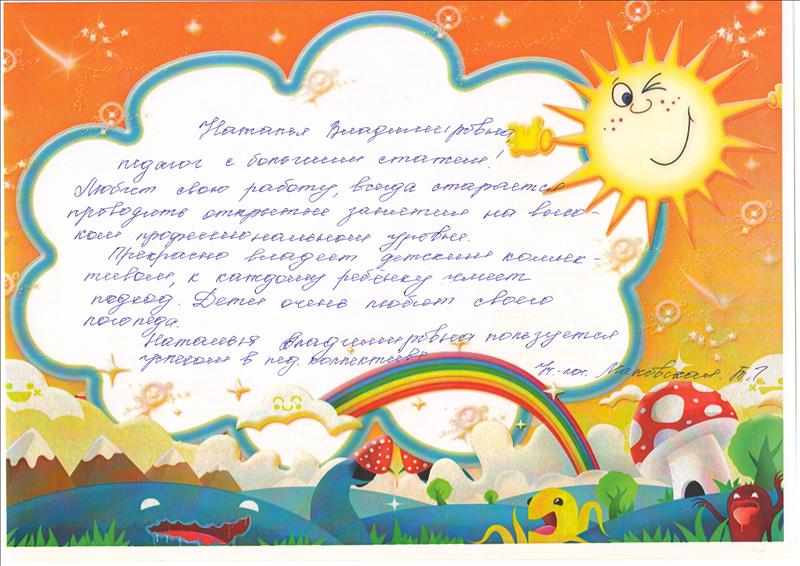 Наталья Владимировна
педагог с большим стажем!
Любит свою работу, всегда старается
проводить открытые занятия на высо-
ком профессиональном уровне.
Прекрасно владеет детским коллек-
тивом, к каждому ребёнку имеет
подход. Дети очень любят своего
логопеда.
Наталья Владимировна пользуется
успехом в пед. коллективе.
Уч.-лог. Маковская. Т.